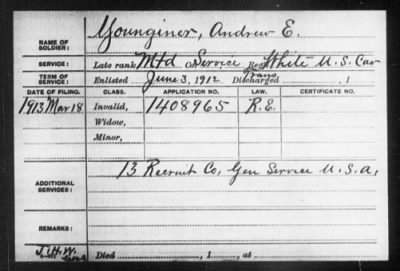 NAME OF SOLDIER: Younginer, Andrew E.
SERVICE: Late rank Mtd Service White U.S. Cav
TERM OF SERVICE: Enlisted June 3, 1912 Discharged Trans, 1
DATE OF FILING. CLASS. APPLICATION NO. LAW. CERTIFICATE NO.
1913 Mar 18 Invalid, 1408965 R.E.
Widow,
Minor,
ADDITIONAL SERVICES: 13 Recruit Co, Gen Service U.S.A,
REMARKS:
Died , 1 , at